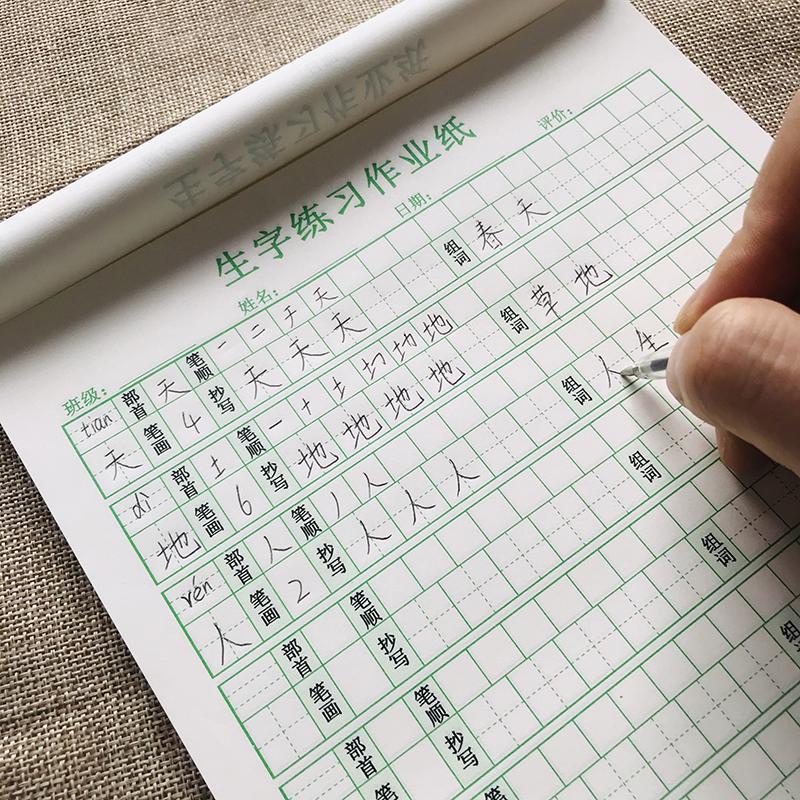 生字练习作业纸
评价：
日期：
姓名：
班级：
tiān 部首 天 笔顺 一 二 天 组词 春天
天 笔画 4 抄写 天 天 天
dì 部首 土 笔顺 一 十 土 地 组词 草地
地 笔画 6 抄写 地 地 地 地
rén 部首 人 笔顺 丿 人 组词 人生
人 笔画 2 抄写 人 人 人
部首 笔顺 组词
笔画 抄写
部首 笔顺 组词
抄写
组词